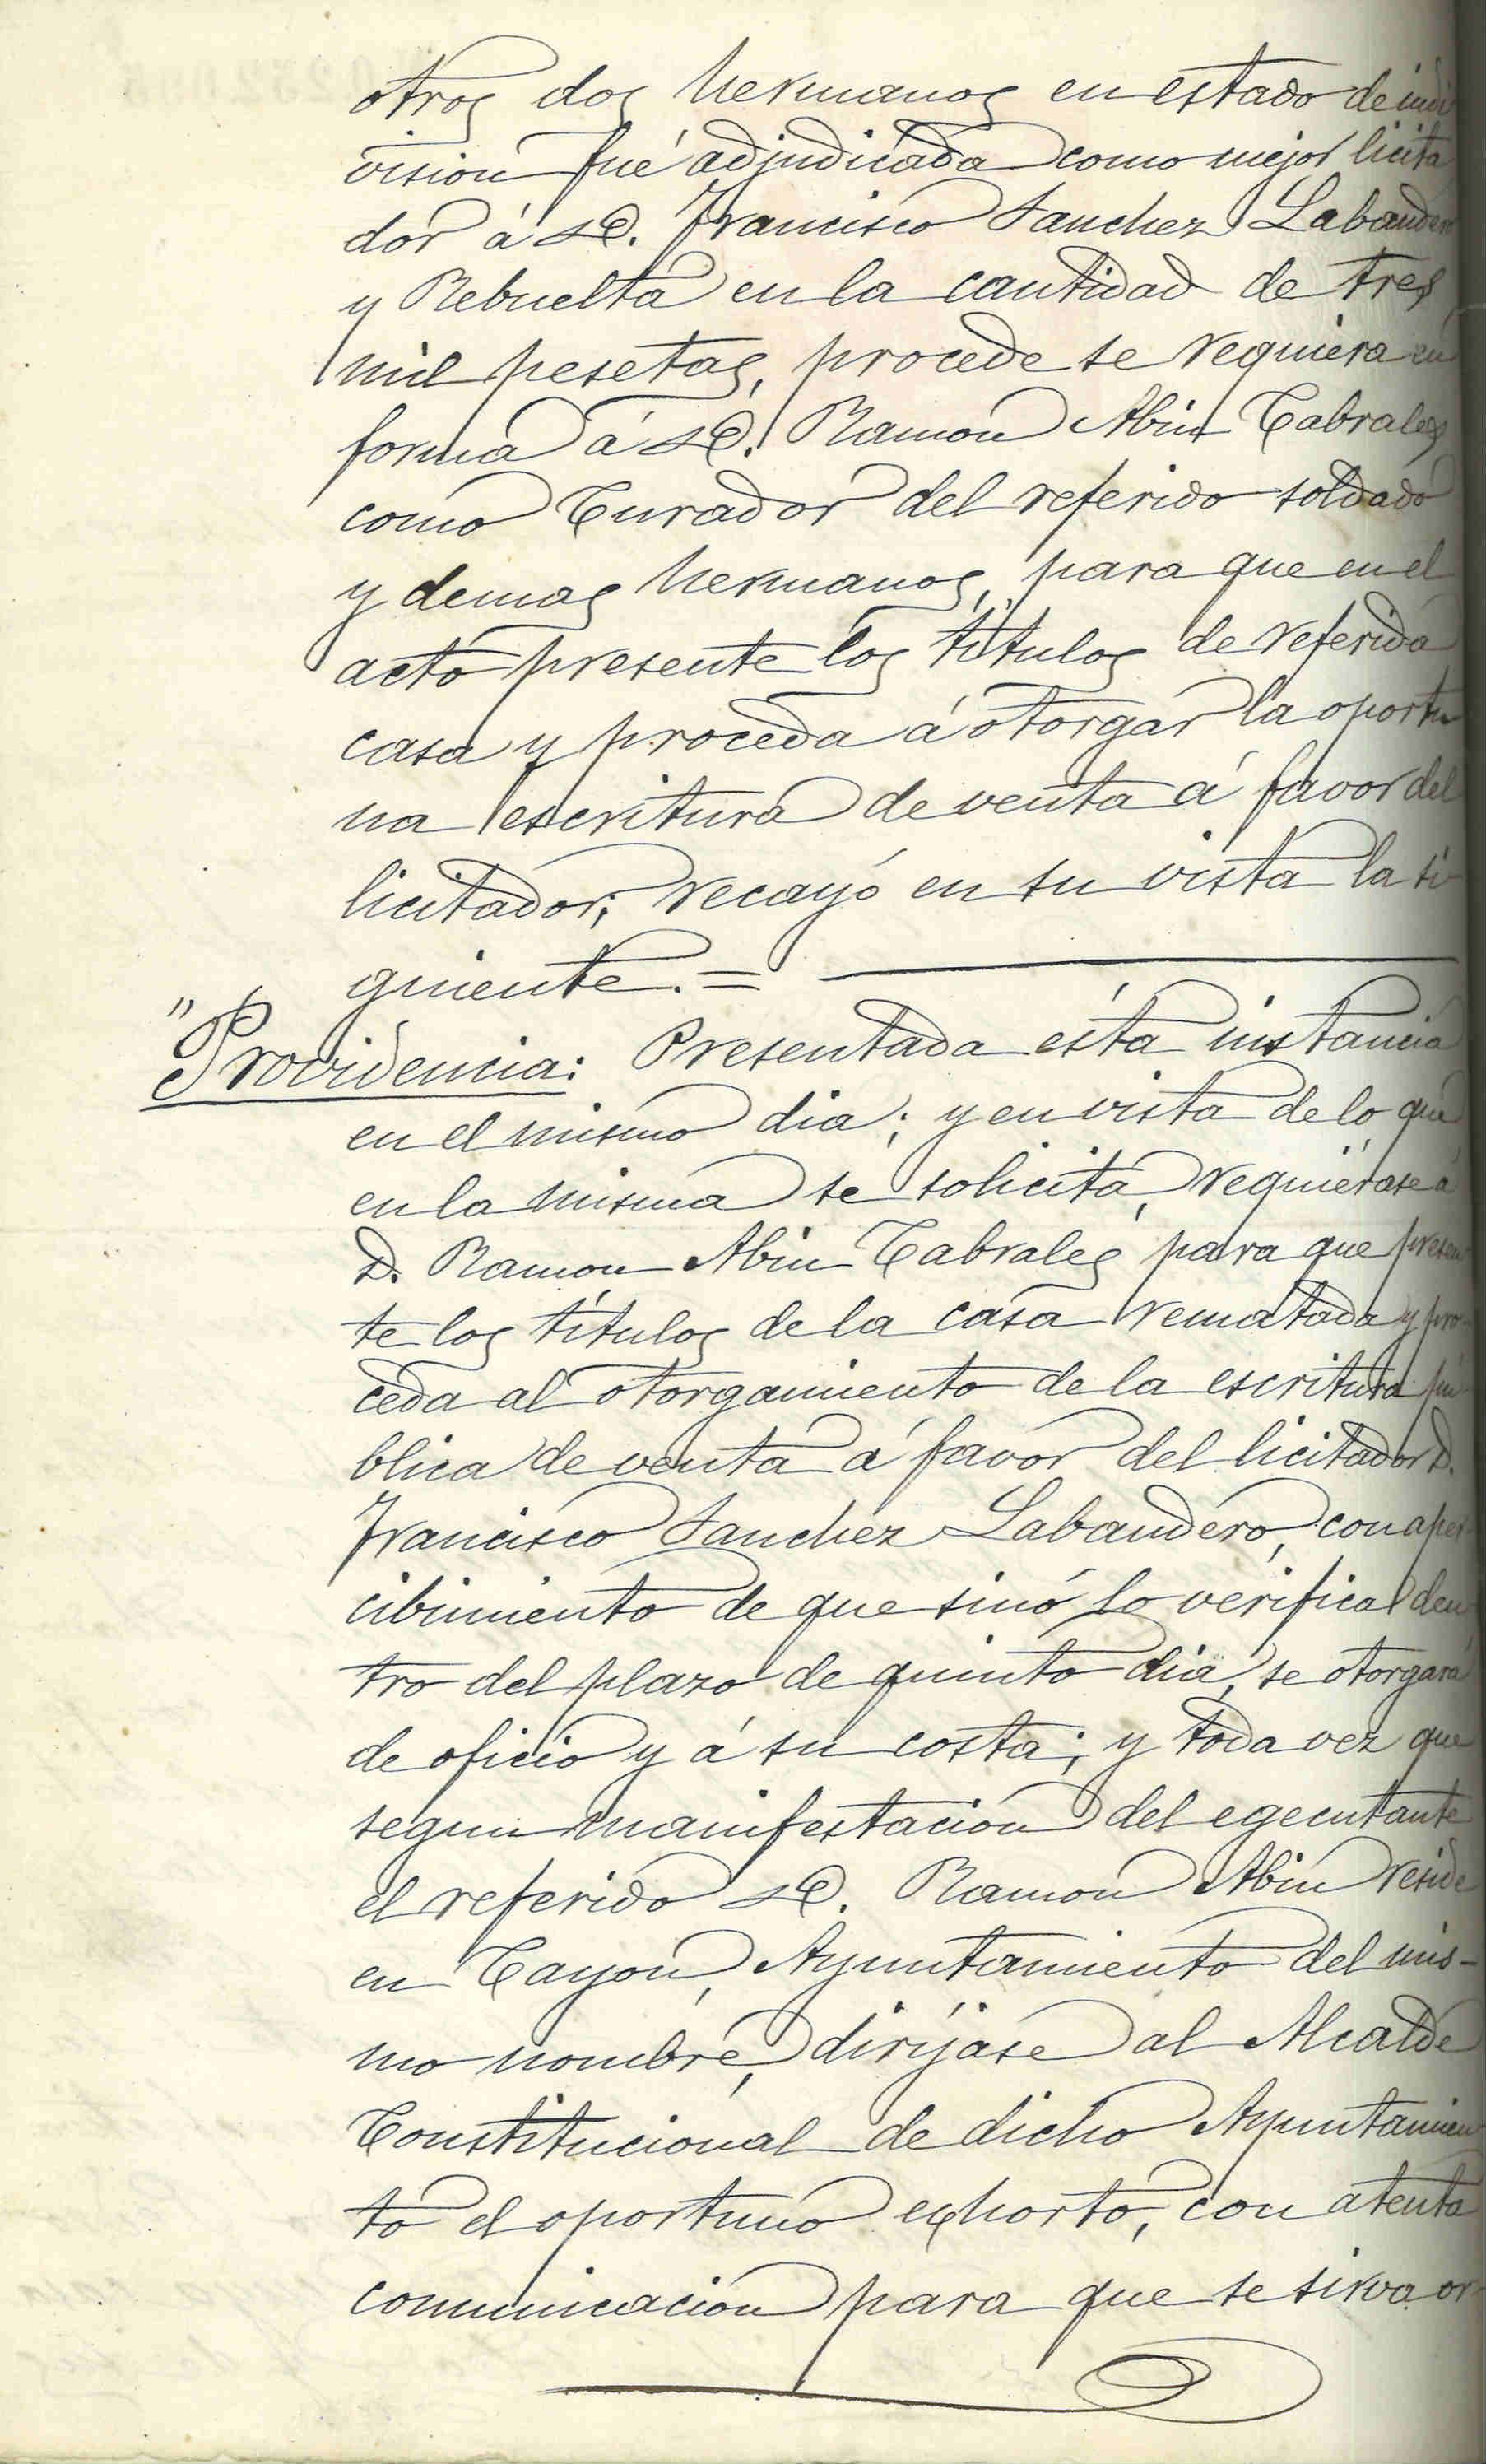 otros dos hermanos en estado de indi
vision fué adjudicada como mejor licita
dor á D. Francisco Sanchez Labandero
y Rebuelta en la cantidad de tres
mil pesetas, procede se requiera en
forma á D. Ramon Abin Cabrales
como Curador del referido soldado
y demas hermanos, para que en el
acto presente los títulos de referida
casa y proceda á otorgar la oportu
na escritura de venta á favor del
licitador; recayó en su vista la si
guiente. =
"Providencia: Presentada ésta instancia
en el mismo dia; y en vista de lo que
en la misma se solicita, requiérase á
D. Ramon Abin Cabrales para que presen
te los títulos de la casa rematada y pro-
ceda al otorgamiento de la escritura pú
blica de venta á favor del licitador D.
Francisco Sanchez Labandero, con aper-
cibimiento de que sinó lo verifica den
tro del plazo de quinto dia, se otorgará
de oficio y á su costa; y toda vez que
segun manifestacion del egecutante
el referido D. Ramon Abin reside
en Cayon, Ayuntamiento del mis-
mo nombre, diríjase al Alcalde
Constitucional de dicho Ayuntamien
to el oportuno exhorto, con atenta
comunicacion para que se sirva or-